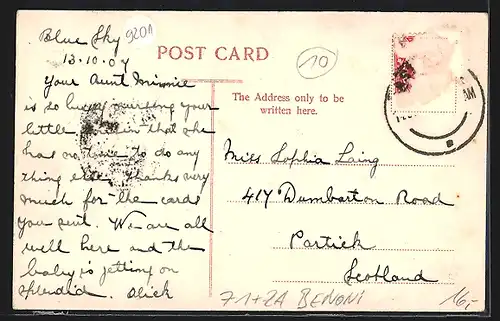 Blue Sky
9201
13.10.07
Your Aunt Minnie
is so busy nursing your
little cousin that she
has no time to do any
thing else. Thanks very
much for the cards
you sent. We are all
well here and the
baby is getting on
splendid. Alick
POST CARD
10
The Address only to be
written here.
Miss Sophia Laing
417 Dumbarton Road
Partick
Scotland
AM
71+2A BENONI
16,-